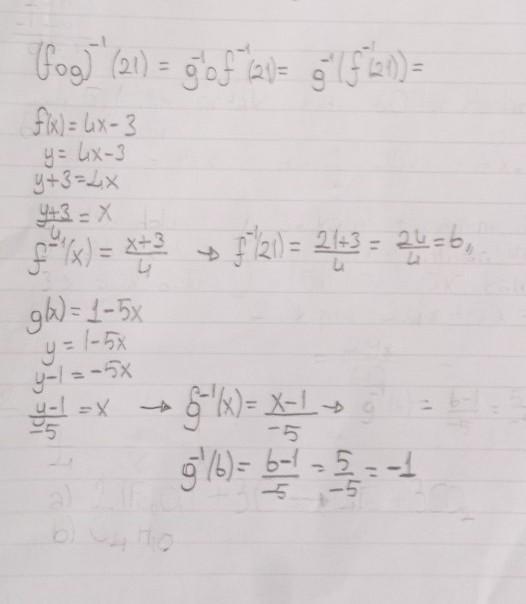 (fog)⁻¹(21) = g⁻¹of⁻¹(21)= g⁻¹(f⁻¹(21))=
f(x)=4x-3
y=4x-3
y+3=4x
y+3/4 = x
f⁻¹(x) = x+3/4 → f⁻¹(21) = 21+3/4 = 24/4 = 6,,
g(x)=1-5x
y=1-5x
y-1=-5x
y-1/-5 = x → g⁻¹(x)= x-1/-5 →
g⁻¹(6) = 6-1/-5 = 5/-5 = -1